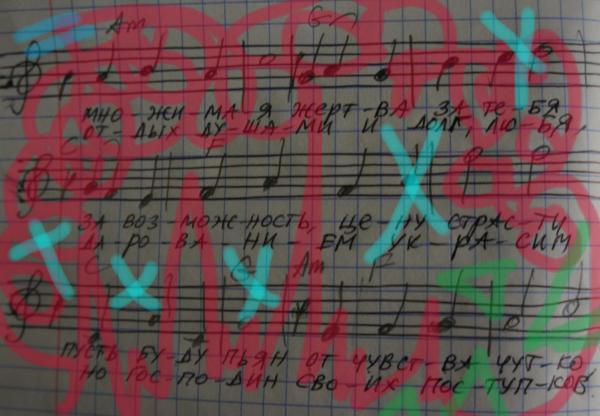 Am G
МНО-ЖИ-МА-Я ЖЕРТ-ВА ЗА ТЕ-БЯ
ОТ-ДЫХ ДУ-ША-МИ И ДОЛГ, ЛЮ-БЯ,
G F
ЗА ВОЗ-МОЖ-НОСТЬ, ЦЕ-НУ СТРАС-ТИ
ДА-РО-ВА НИ-ЕМ УК-РА-СИМ
C G Am F
ПУСТЬ БУ-ДУ ПЬЯН ОТ ЧУВСТ-ВА ЧУТ-КО
НО ГОС-ПО-ДИН СВО-ИХ ПОС-ТУП-КОВ